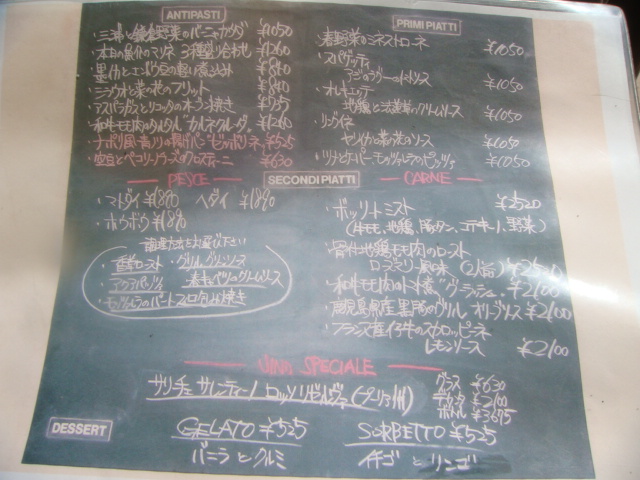 ANTIPASTI
・三浦と鎌倉野菜のバーニャカウダ ¥1050
・本日の魚介のマリネ 3種盛り合わせ ¥1260
・墨イカとエンドウ豆の軽い煮込み ¥840
・シラウオと菜の花のフリット ¥840
・アスパラガスとリコッタのオーブン焼き ¥735
・和牛モモ肉のタルタル "カルネクルーダ" ¥1260
・ナポリ風青ノリの揚げパン "ゼッポリーネ" ¥525
・空豆とペコリーノチーズのクロスティーニ ¥630
PRIMI PIATTI
・春野菜のミネストローネ ¥1050
・スパゲッティ
¥1050
・オレキエッテ
地鶏と のクリームソース ¥1050
・リングイネ
ヤリイカと菜の花のソース ¥1050
¥1050
SECONDI PIATTI
PESCE
・マトダイ ¥1890 ヘダイ ¥1890
・ホウボウ ¥1890
調理方法をお選び下さい
・香草ロースト ・グリル
・アクアパッツァ
CARNE
・ボッリートミスト ¥2520
(牛モモ、地鶏、豚タン、コテキーノ、野菜)
・骨付地鶏モモ肉のロースト
ローズマリー風味 (2人前)
・和牛モモ肉のトマト煮 "グーラッシュ" ¥2100
・鹿児島県産黒豚のグリル オリーブソース ¥2100
・フランス産仔牛のスカロッピーネ
レモンソース ¥2100
VINO SPECIALE
サリチェ サレンティーノ ロッソ リゼルヴァ (プーリア州)
グラス ¥630
デカンタ ¥2100
ボトル ¥3675
DESSERT
GELATO ¥525
バニラ と クルミ
SORBETTO ¥525
イチゴ と リンゴ